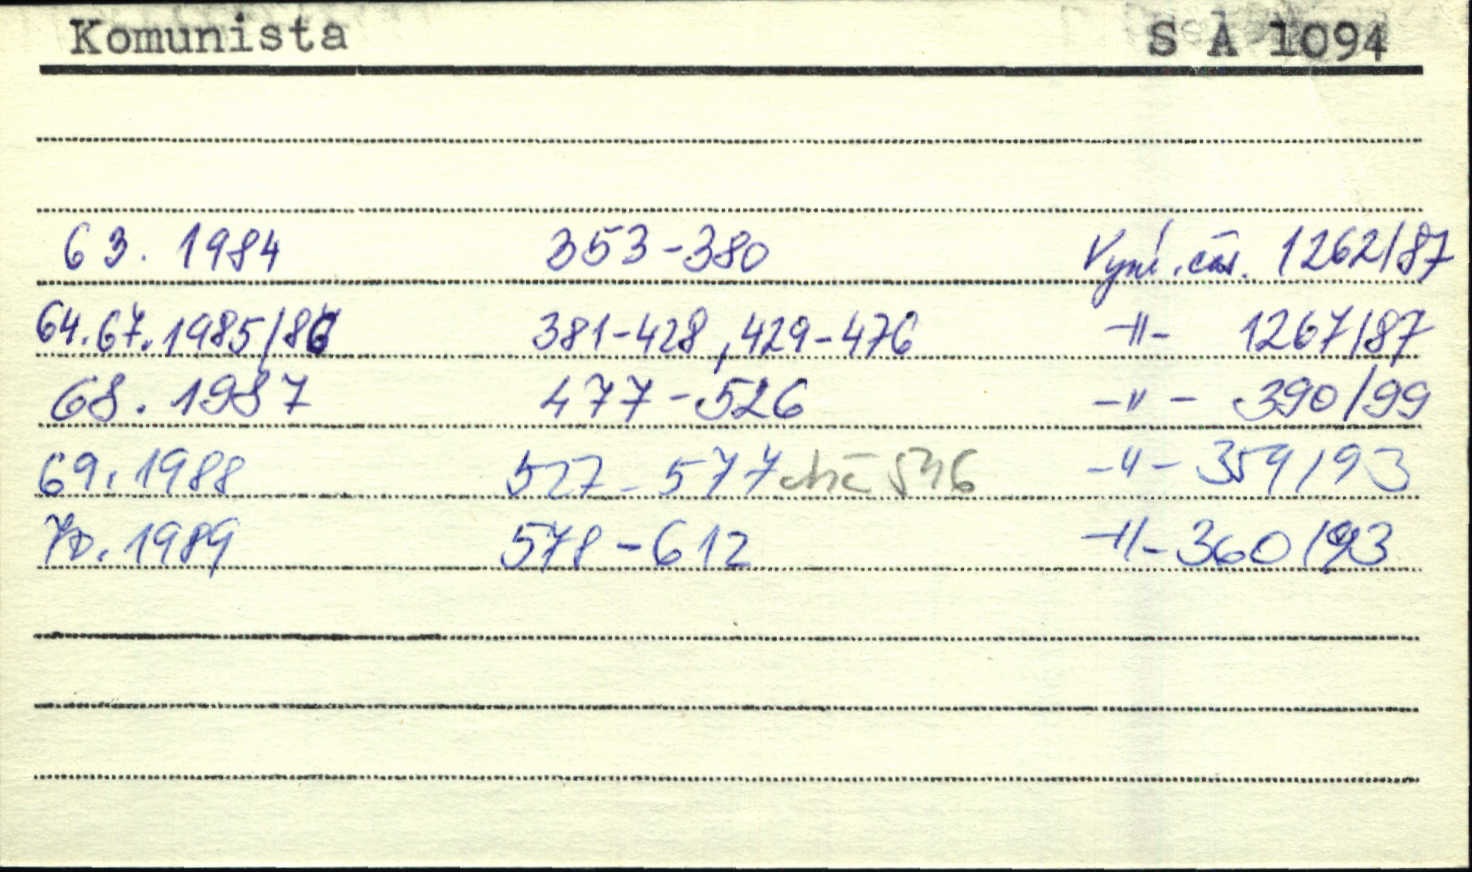 Komunista S A 1094
63. 1984 353-380 Vyní. čas. 1262/87
64.67.1985/86 381-428, 429-476 -"- 1267/87
68. 1987 477-526 -"- 390/99
69. 1988 527-577 546 -"- 359/93
70. 1989 578-612 -"- 360/93